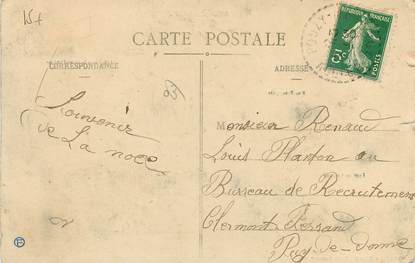 15f
CARTE POSTALE
RÉPUBLIQUE FRANÇAISE
5c
POSTES
CORRESPONDANCE
ADRESSE
Souvenir
de La noce
Monsieur Renaud
Louis Planton au
Bureau de Recrutement
Clermont Ferrand
Puy-de-Dôme